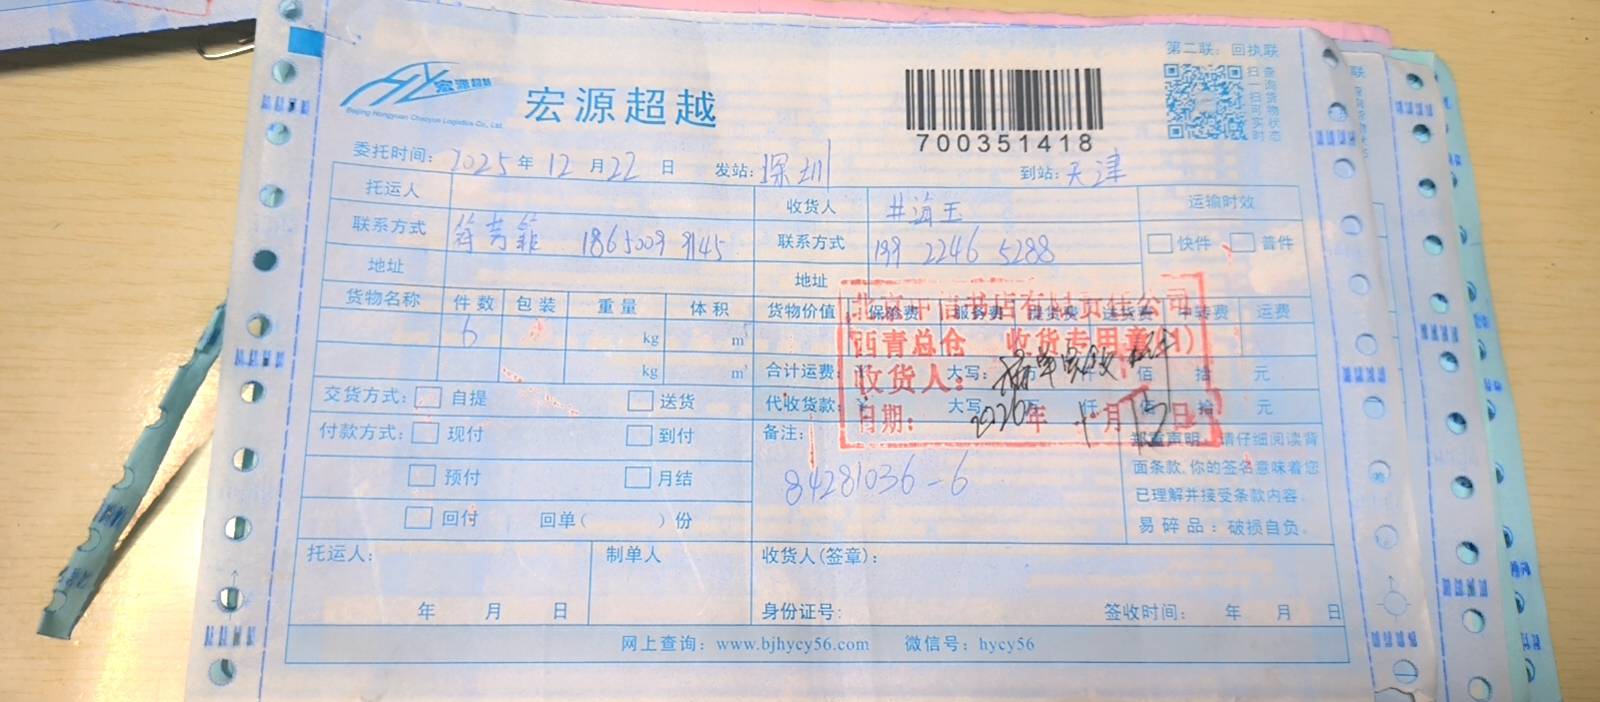 第二联：回执联
宏源超越
Beijing Hongyuan Chaoyue Logistics Co., Ltd.
宏源超越
扫一扫可即时
查询货物状态
700351418
委托时间：2025年12月22日 发站：深圳 到站：天津
托运人 收货人 井海玉 运输时效
联系方式 18650099145 联系方式 199 2246 5288 快件 普件
地址 地址
货物名称 件数 包装 重量 体积 货物价值 保险费 服务费 提货费 送货费 中转费 运费
6 kg m³
kg m³
西青总仓 收货专用章(1)
收货人：
日期： 年 月 日
合计运费：¥ 大写： 万 仟 佰 拾 元
交货方式： 自提 送货 代收货款：¥ 大写： 万 仟 佰 拾 元
付款方式： 现付 到付 备注： 郑重声明：请仔细阅读背
预付 月结 84281036-6 面条款,你的签名意味着您
已理解并接受条款内容。
回付 回单( )份 易碎品：破损自负。
托运人： 制单人 收货人(签章)：
年 月 日 身份证号: 签收时间： 年 月 日
网上查询：www.bjhycy56.com 微信号：hycy56